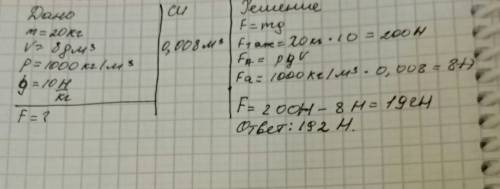 Дано
m = 20кг
V = 8дм³
P = 1000кг/м³
g = 10 Н/кг
F = ?
СИ
0,008м³
Решение
F = mg
Fтяж = 20кг • 10 = 200Н
FA = pgV
Fa = 1000кг/м³ • 0,008 = 8Н
F = 200Н – 8Н = 192Н
Ответ: 192 Н.